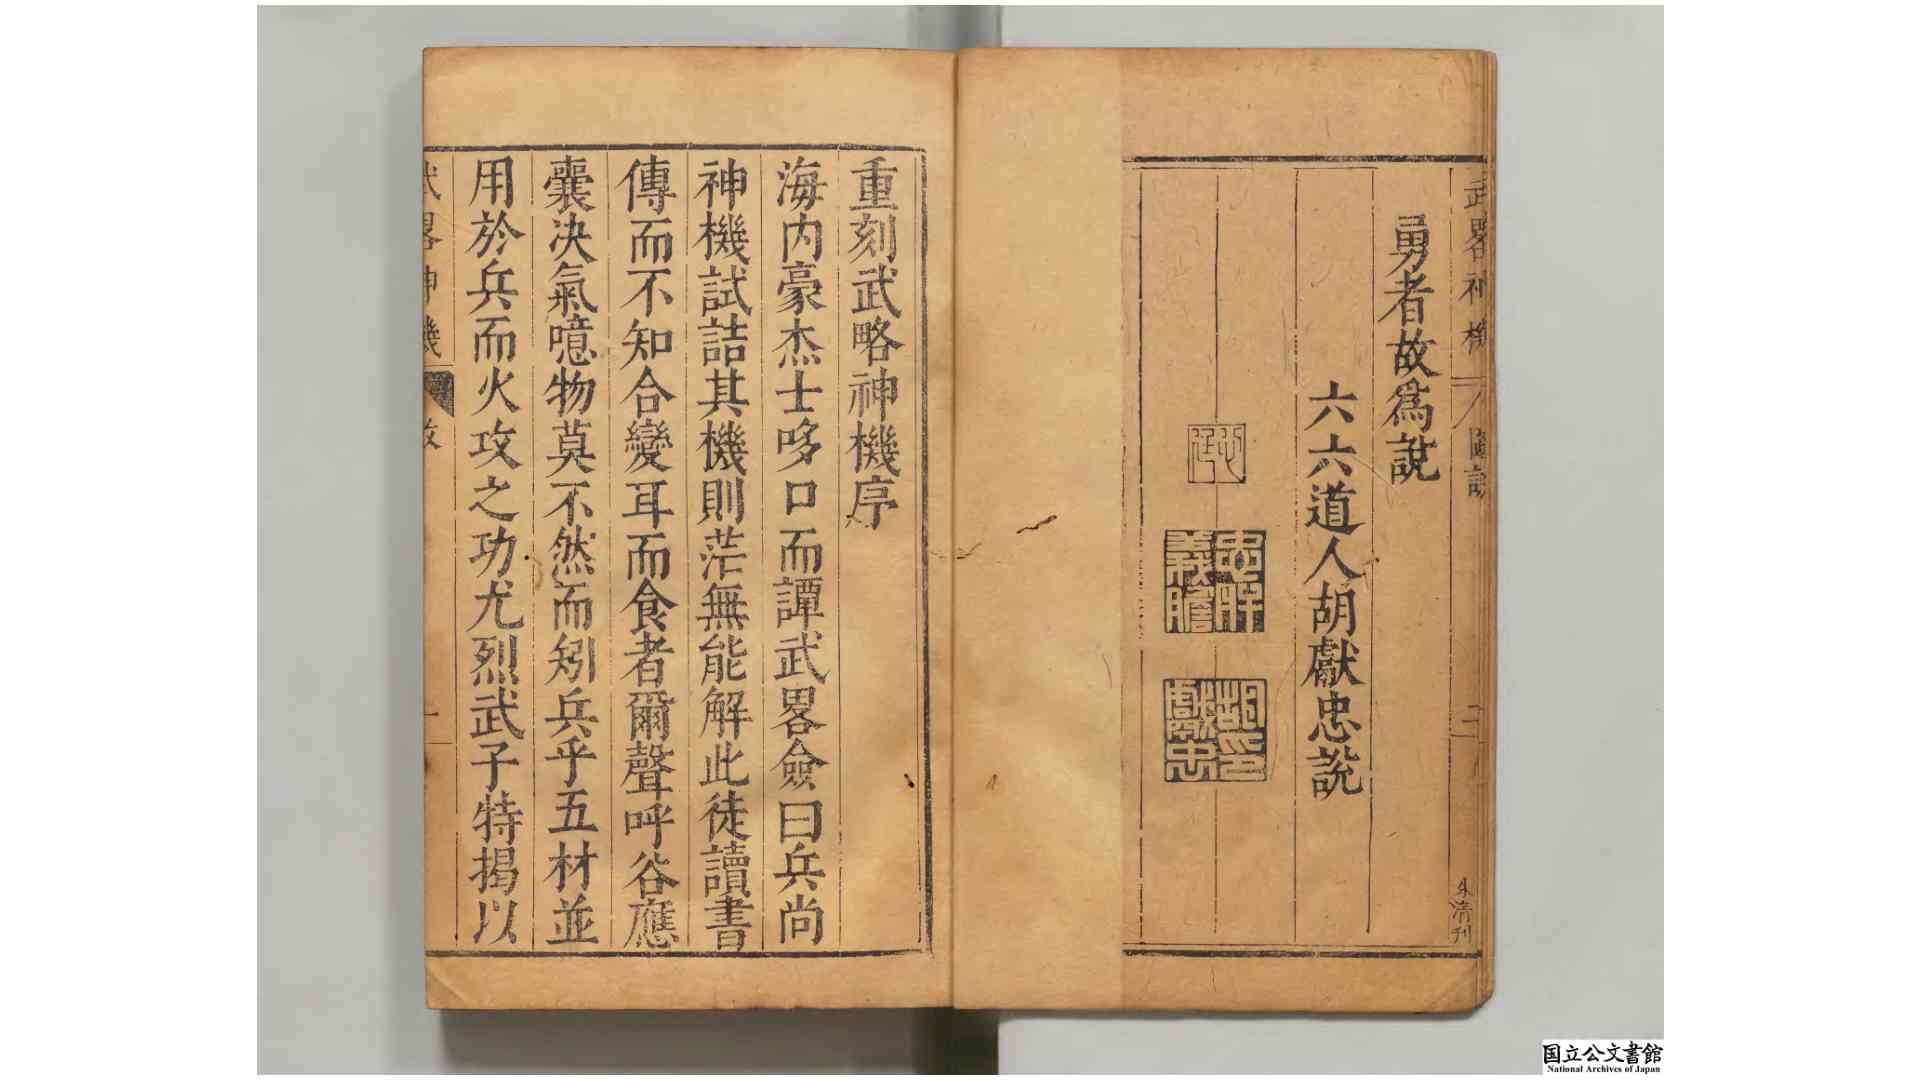 武畧神機
圖說
二
清刊
勇者故爲說
六六道人胡獻忠說
忠肝義膽
胡印獻忠
重刻武略神機序
海内豪杰士哆口而譚武畧僉曰兵尚
神機試詰其機則茫無能解此徒讀書
傳而不知合變耳而食者爾聲呼谷應
囊决氣噫物莫不然而矧兵乎五材並
用於兵而火攻之功尤烈武子特揭以
武畧神機
一
国立公文書館
National Archives of Japan